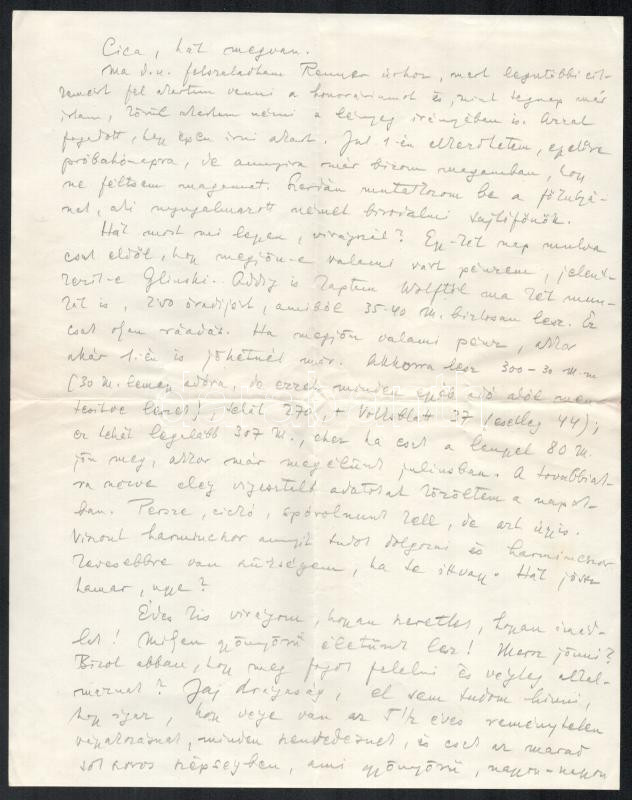 Cica, hát megvan.
Ma d.u. felszaladtam Renner úrhoz, mert legutóbbi
fel akartam venni a honoráriumot és, mint tegnap már
írtam, akartam némi a lényeg irányában is. Azzal
fogadott, hogy épen írni akart. Jul 1-én elkezdhetem, egyelőre
próbahónapra, de annyira már bízom magamban, hogy
ne féltsem magamat. Szerdán mutatkozom be a
aki nyugalmazott német birodalmi sajtófőnök.
Hát most mi legyen, virágszál? Egy-két nap mulva
csak eldől, hogy megjön-e valami várt pénzem,
Glinski. Addig is kaptam Wolfftól ma két
is, amiből 35-40 M. biztosan lesz. Ez
csak olyan ráadás. Ha megjön valami pénz, akkor
akár 1.-én is jöhetnél már. Akkorra lesz 300-30 M.
(30 M. lemegy adóra, de ezzel minden egyéb adó alól
leszek), tehát 270, + Volksblatt 37 (esetleg 44);
ez tehát legalább 307 M., ehez ha csak a lengyel 80 M.
jön meg, akkor már megélünk juliusban. A
adatokat közöltem a
ban. Persze, cickó, spórolnunk kell, de azt úgyis.
Viszont harmincszor annyit tudok dolgozni és harmincszor
kevesebbre van szükségem, ha te itt vagy. Hát jössz
hamar, ugye?
Édes kis virágom, hogyan szeretlek, hogyan
Milyen gyönyörű életünk lesz! Mersz jönni?
Bízol abban, hogy meg fogok felelni és végleg
Jaj drágaság, el sem tudom hinni,
hogy igaz, hogy vége van az 5½ éves reménytelen
várakozásnak, minden szenvedésnek, és csak az marad
szépségben, ami gyönyörű, nagyon-nagyon